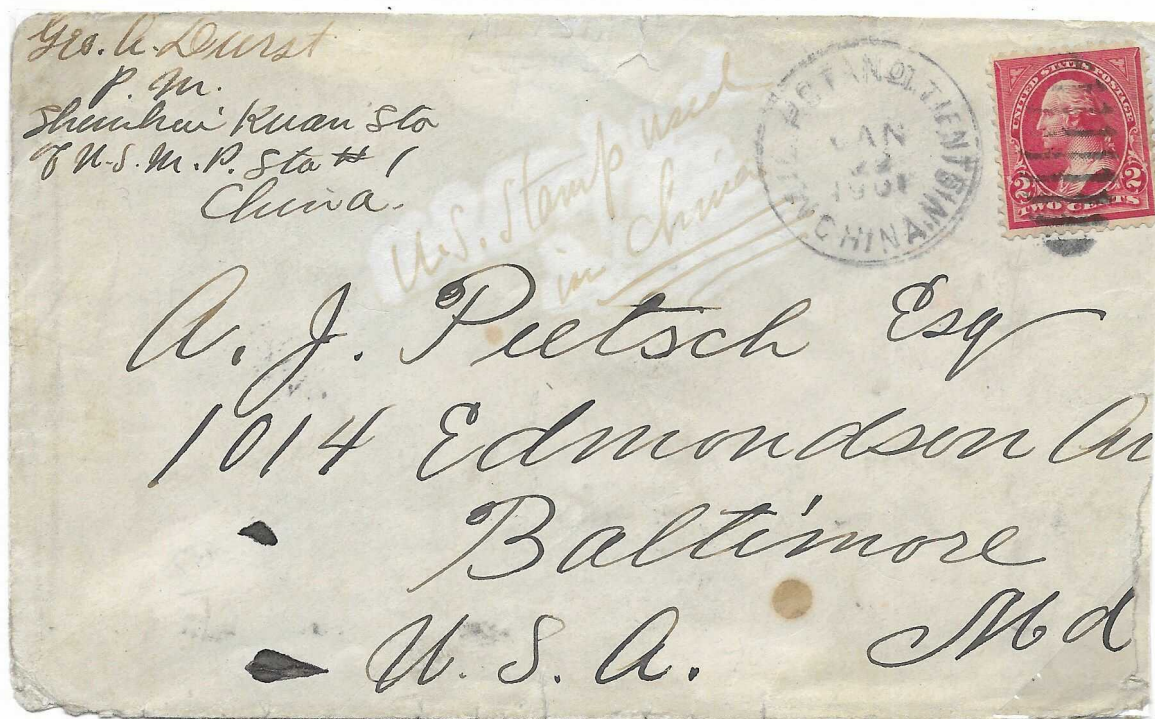 Geo. A. Durst
P. M.
Shanhai Kuan Sta
of U.S. M. P. Sta # 1
China.
U.S. Stamp used
in China
JAN
22
1901
CHINA
UNITED STATES POSTAGE
2 2
TWO CENTS
A. J. Pietsch Esq
1014 Edmondson Av
Baltimore
Md
U. S. A.